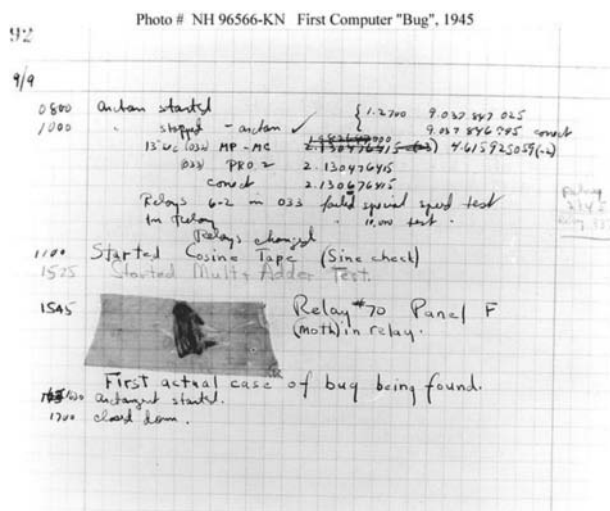 Photo # NH 96566-KN First Computer "Bug", 1945
92
9/9
0800 arctan started
1000 " stopped - arctan ✓
{ 1.2700 9.037 847 025
9.037 846 995 correct
13"uc (032) MP-MC 2.130476415 (-3) 4.615925059(-2)
(033) PRO. 2 2.130476415
correct 2.130676415
Relays 6-2 in 033 failed special speed test
in relay " 10,000 test.
Relays changed
1100 Started Cosine Tape (Sine check)
1525 Started Mult+Adder Test.
1545 Relay #70 Panel F
(moth) in relay.
First actual case of bug being found.
1630 arctangent started.
1700 closed down.